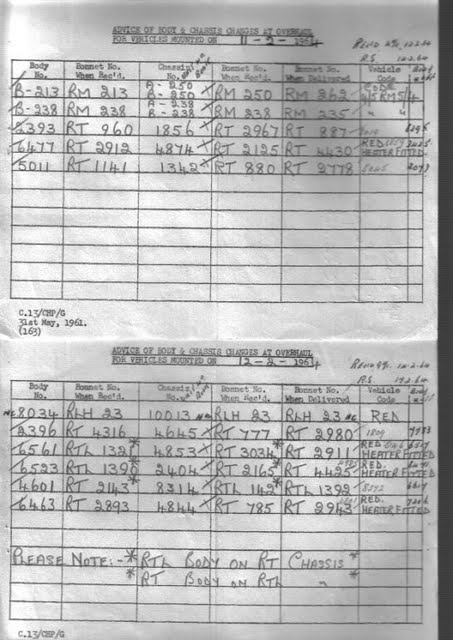 ADVICE OF BODY & CHASSIS CHANGES AT OVERHAUL
FOR VEHICLES MOUNTED ON 11-2-1964
RS 12.2.64
Body No. Bonnet No. When Rec'd. Chassis No. Bonnet No. When Rec'd. Bonnet No. When Delivered Vehicle Code
B-213 RM 213 A-250 B-250 RM 250 RM 262 CODE 5/4
B-238 RM 238 A-238 B-238 RM 238 RM 235 " "
2393 RT 960 1856 RT 2967 RT 887
6477 RT 2912 4874 RT 2125 RT 4430 RED HEATER FITTED
5011 RT 1141 1342 RT 880 RT 2778
C.13/CMP/G
31st May, 1961.
(163)
ADVICE OF BODY & CHASSIS CHANGES AT OVERHAUL
FOR VEHICLES MOUNTED ON 12-2-1964
RS
Body No. Bonnet No. When Rec'd. Chassis No. Bonnet No. When Rec'd. Bonnet No. When Delivered Vehicle Code
8034 RLH 23 10013 RLH 23 RLH 23 RED
2396 RT 4316 4645 RT 777 RT 2980
6561 RTL 1321* 4853 RT 3034* RT 2911 RED HEATER FITTED
6523 RTL 1390* 2404 RT 2165* RT 4425 RED. HEATER FITTED
4601 RT 2143* 8314 RTL 142* RTL 1392
6463 RT 2893 4844 RT 785 RT 2943 RED. HEATER FITTED
PLEASE NOTE:-* RTL BODY ON RT CHASSIS*
* RT BODY ON RTL "
C.13/CMP/G